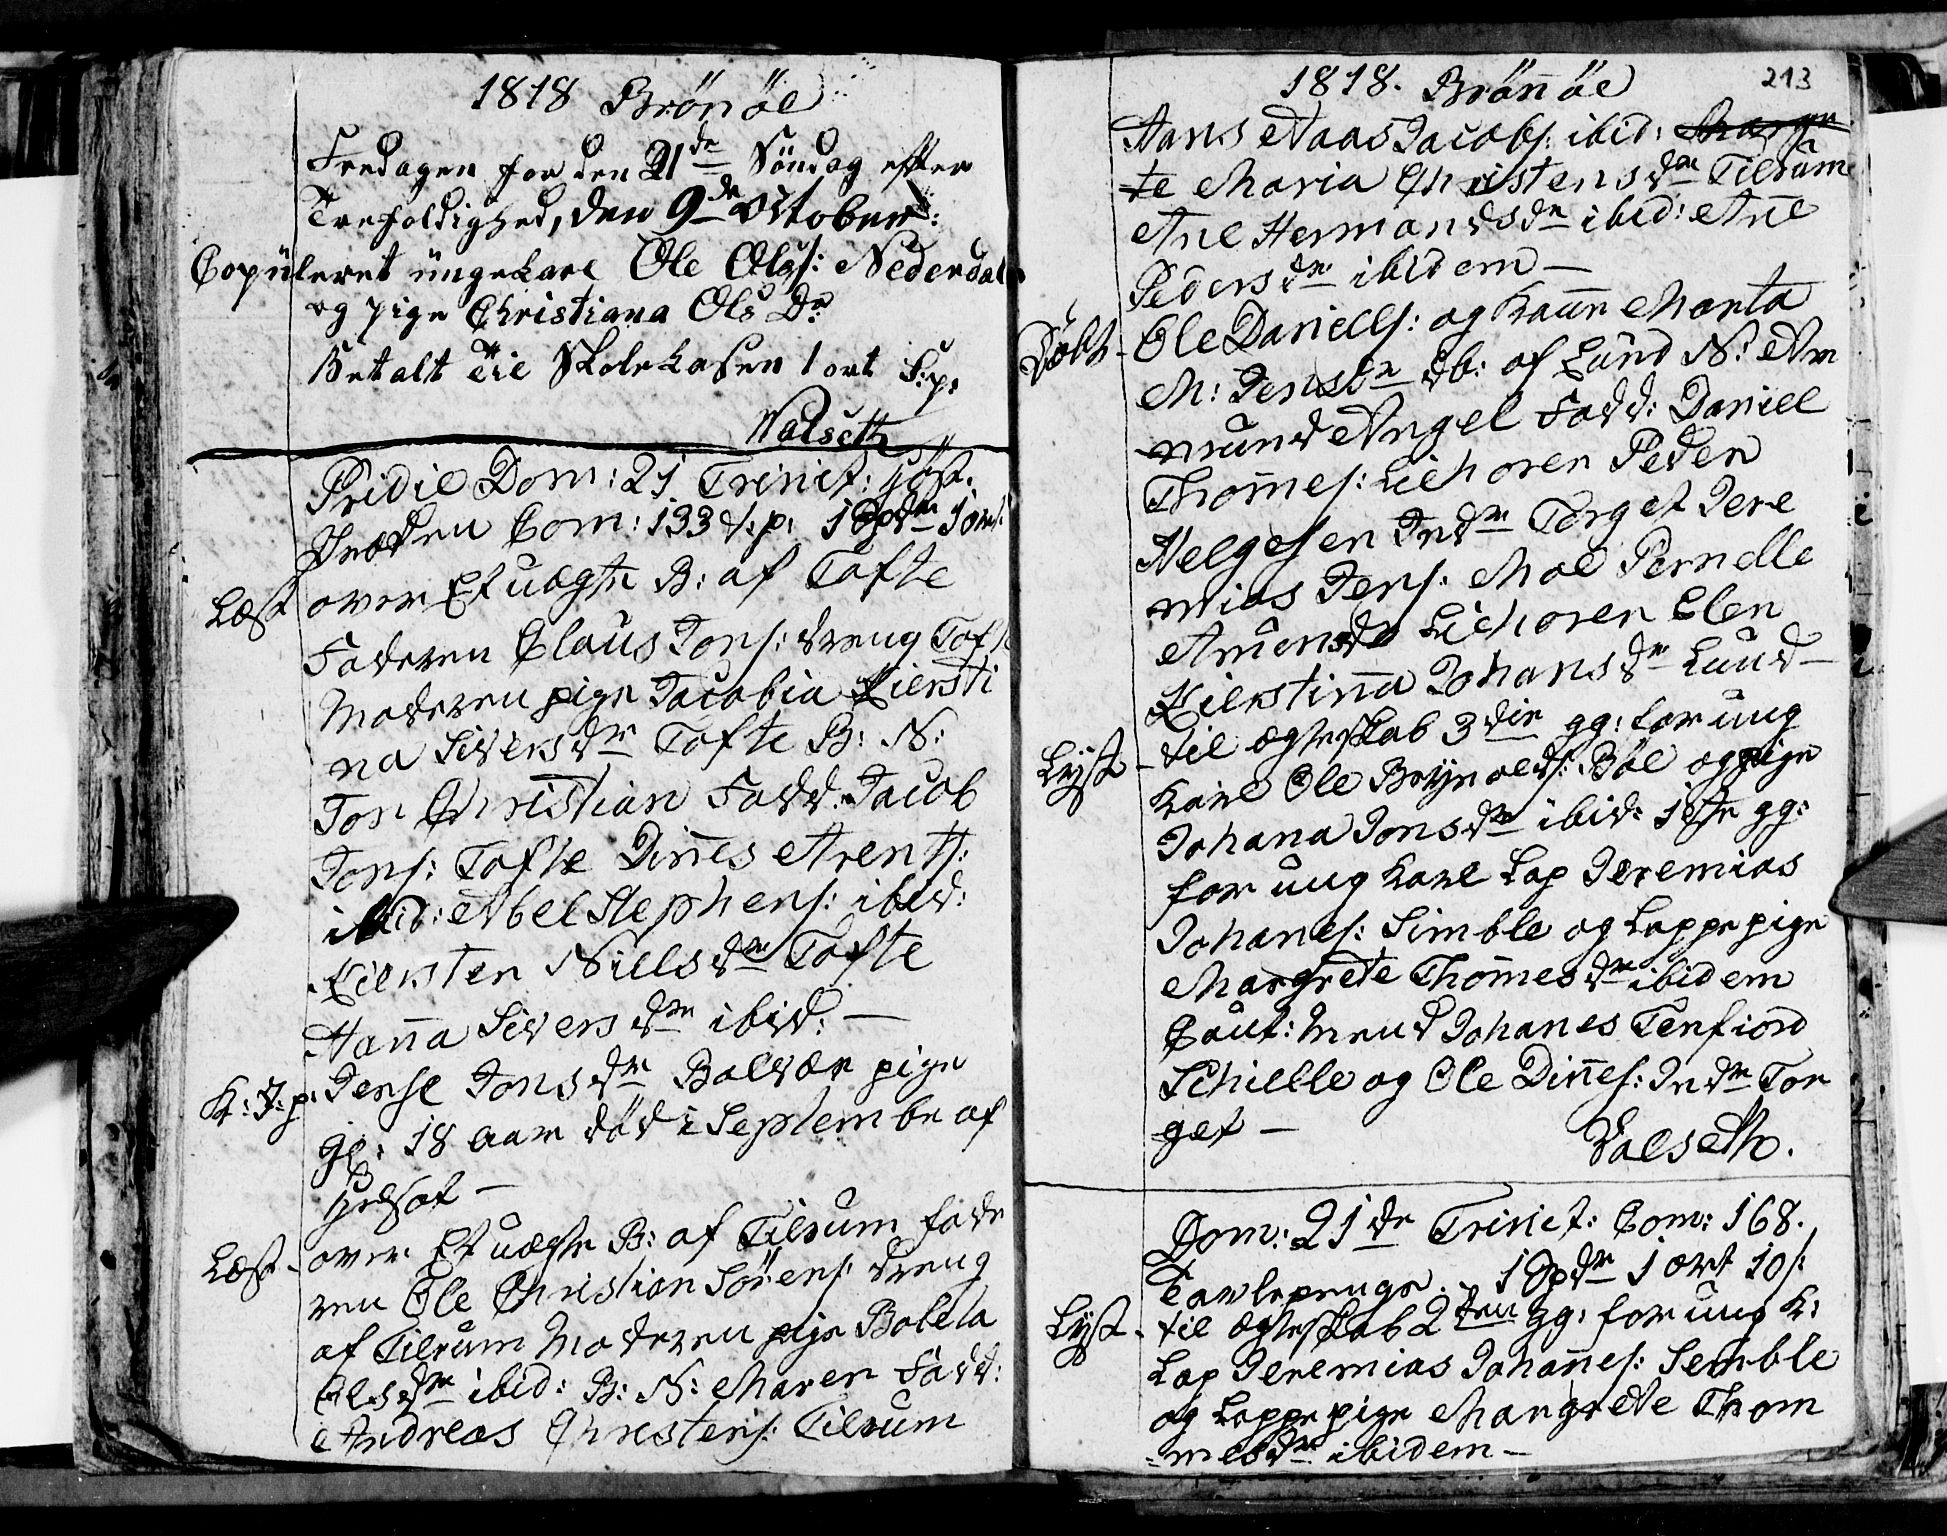 1818 Brönöe
Fredagen for den 21de Söndag efter
Trefoldighed, den 9de October:
Copüleret üngekarl Ole Ols: Nederdal
og pige Christiana Ols Dr
Betalt til Skolekasen 1 ort S:p:
Walseth
Pridie Dom: 21 Trinit: höst.
Præken Com: 133 1 Spdr 1 ort
Læst over Et uægte B: af Tofte
Faderen Claus Jons: dreng Tofte
Moderen pige Jacobia Kiersti
na Siversdr Tofte B: N:
Jon Christian Fadd: Jacob
Jons: Tofte Dines Arents:
ibid: Abel Stephens: ibid:
Kiersten Nielsdr Tofte
Hanna Siversdr ibid: —
K: J: p: Jense Jonsdr Bolvær pige
gl: 18 aar död i Septembr af
—
Læst - over Et uægte B: af Tilrum fade
ren Ole Christian Sörens: dreng
af Tilrum Moderen pige Boleta
Olsdr ibid: B: N: Maren Fadd:
Andreas Christens: Tilrum
1818. Brönöe 213
Hans Naas Jacobs: ibid: Margre
te Maria Christensdr Tilrum
Ane Hermandsdr ibid: Ane
Pedersdr ibidem —
Döbt - Ole Daniels: og Kaane Marta
M: Jensdr db: af Lund N: Am
mund Angel Fadd: Daniel
Thomes: Lichoren Peder
Helgesen Indr Torget Jere
mias Jens: Moe Pernelle
Amondsdr Lichoren Elen
Kierstina Johansdr Lund —
Lyst - til ægteskab 3die gg: for ung
karl Ole Brynolds: Böe og pige
Johana Jonsdr ibid: 1ste gg:
for ung karl Lap Jeremias
Johanes: Simble og Lappe pige
Margrete Thomesdr ibidem
Caut: Mend Johanes Tenfiord
Schielle og Ole Dines: Indr Tor
get — Valseth.
Dom: 21de Trinit: Com: 168.
Tavlepenge. 1 Spdr 1 ort 10 s:
Lyst - til ægteskab 2den gg: for ung K:
Lap Jeremias Johanes: Semble
og Lappe pige Margrete Thom
=mesdr ibidem —